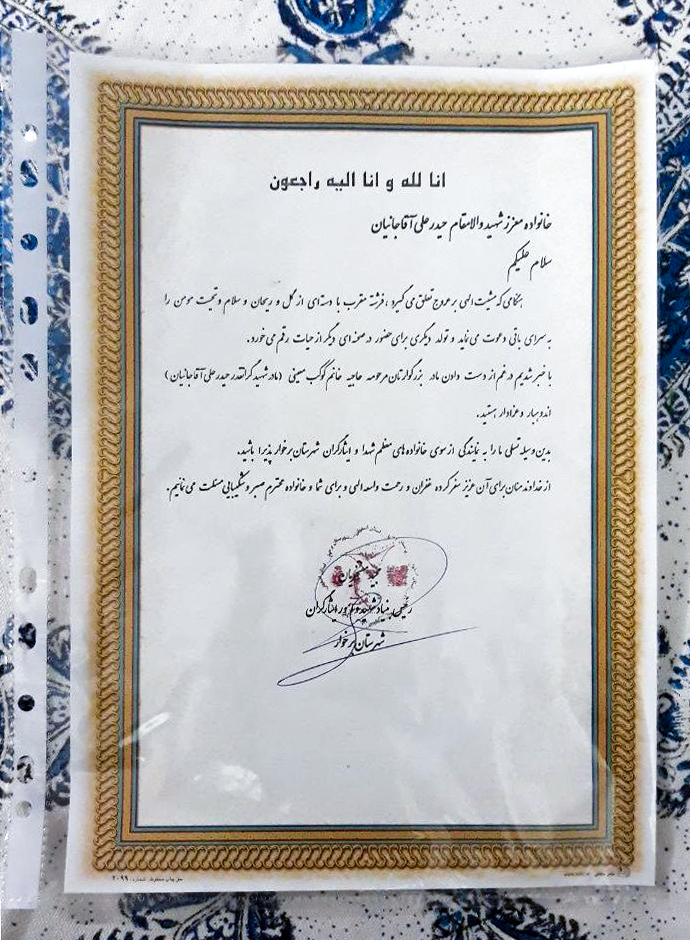 انا لله و انا الیه راجعون
خانواده معزز شهید والامقام حیدرعلی آقاجانیان
سلام علیکم
هنگامی که مشیت الهی بر عروج تعلق می گیرد ، فرشته مقرب با دسته ای از گل و ریحان و سلام و تحیت مومن را
به سرای باقی دعوت می نماید و تولد دیگری برای حضور در صحنه ای دیگر از حیات رقم می خورد.
با خبر شدیم در غم از دست دادن مادر بزرگوارتان مرحومه حاجیه خانم کوکب معینی (مادر شهید گرانقدر حیدر علی آقاجانیان)
اندوهبار و عزادار هستید.
بدین وسیله تسلی ما را به نمایندگی از سوی خانواده های معظم شهدا و ایثارگران شهرستان برخوار پذیرا باشید.
از خداوند منان برای آن عزیز سفر کرده غفران و رحمت واسعه الهی و برای شما و خانواده محترم صبر و شکیبایی مسئلت می نمائیم.
رئیس بنیاد شهید و امور ایثارگران
شهرستان برخوار
حق چاپ محفوظ. شماره: ۲۰۹۹